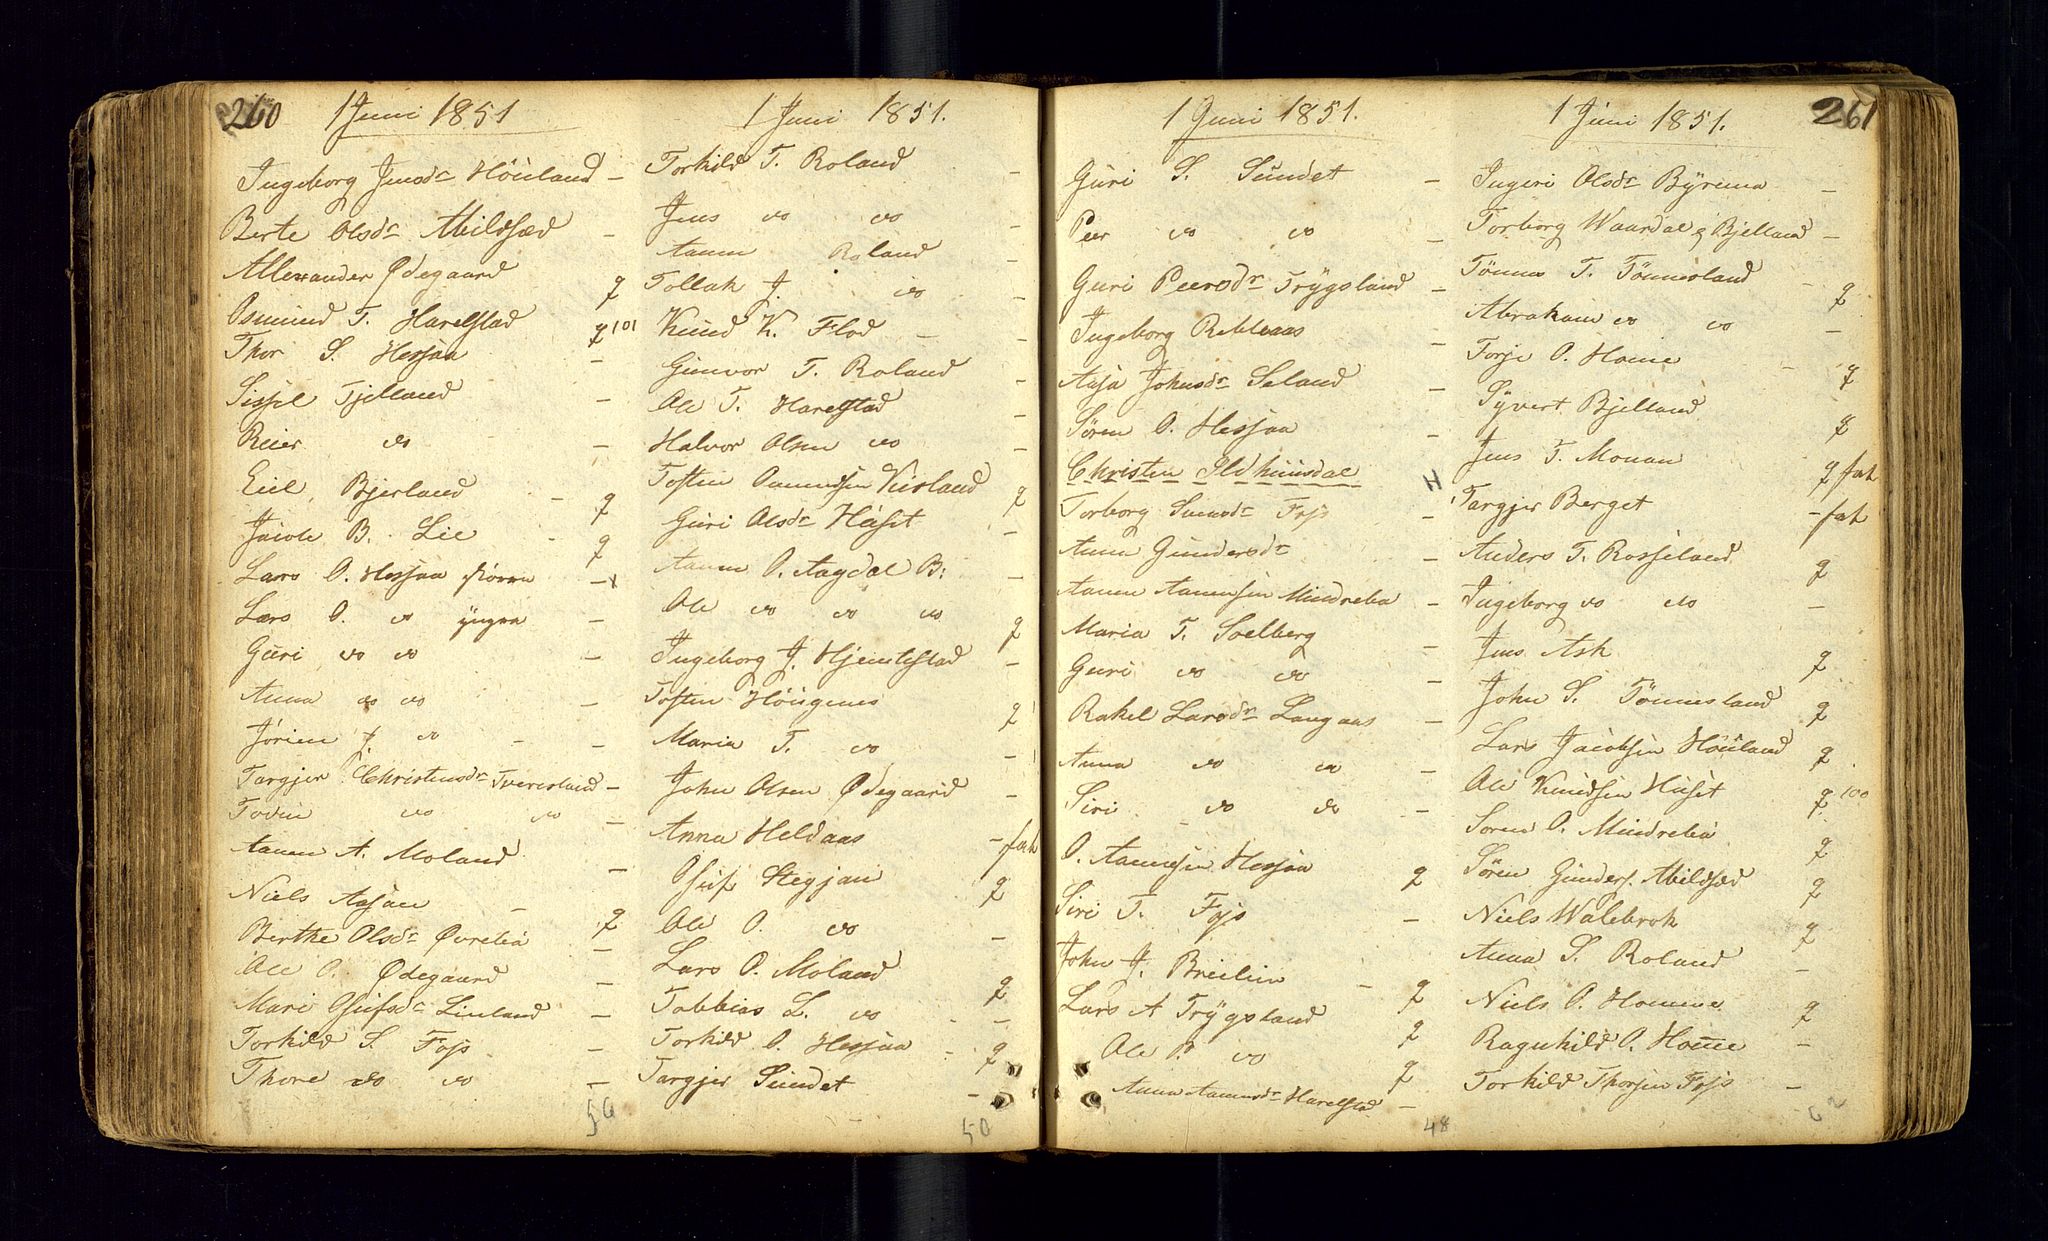 260
1 Juni 1851
Ingeborg Jensdr Höuland -
Berte Olsdr Abildsæd -
Allexander Ødegaard g
Osmund T. Harelstad g 101
Thor S. Hessaa -
Sissel Fjelland -
Reier do -
Eiel Bjerland - g
Jacob B. Lie - g
Lars O. Hessaa större -
Lars O. do yngre -
Guri do do -
Anna do do -
Jörien J. do - -
Targjer Christensdr Tveresland -
Tovin do do -
Aanen A. Moland -
Niels Aasan - g
Berthe Olsdr Øvrebö -
Ole O. Ødegaard -
Mari Osufsdr Linland -
Torkild S. Foss -
Thore do do -
50
1 Juni 1851.
Torkild T. Roland -
Jens do do -
Aanen Roland -
Tollak J. do -
Knud K. Flod - -
Gunvor T. Roland -
Ole T. Harelstad -
Halvor Olsen do -
Tosten Aanensen Kirland g
Guri Olsdr Huset -
Aanen O. Aagdal B: -
Ole do do do g
Ingeborg J. Hjemlestad -
Tosten Höigenes g
Maria T. do -
John Olsen Ødegaard -
Anna Heldaas - fat
Osuf Stegjan g
Ole O. do -
Lars O. Moland g
Tobbias L. do - -
Torkild O. Hessaa - g
Targjer Sundet -
50
1 Juni 1851.
Guri S. Sundet -
Peer do do -
Guri Peersdr Trygsland -
Ingeborg Rebbaas -
Aasa Johnsdr Saland -
Sören O. Hessaa -
Christen Ildhuusdal H
Torborg Svensdr Foss -
Anna Gundersdr -
Aanen Aanensen Mindrebö -
Maria T. Solberg -
Guri do do -
Rakel Larsdr Langaas -
Anna do do -
Siri do do -
O. Aanensen Hessaa g
Siri T. Foss -
John J. Breilien - g
Lars A Trygsland g
Ole P. do g
Anna Aanensdr Harelstad -
48
261
1 Juni 1851.
Ingeri Olsdr Byremo -
Torborg Waardal & Bjelland -
Tönnes T. Tönnesland - g
Abraham do do -
Torje O. Home - g
Syvert Bjelland g
Jens T. Monan g fat
Targjer Berget - fat
Anders T. Rosseland g
Ingeborg do do -
Jens Ask g
John S. Tönnesland g
Lars Jacobsen Höuland g
Ole Knudsen Huset g 100
Soren O. Mindrebö g
Sören Gunders. Abildsæd g
Niels Walebrok g
Anna S. Roland -
Niels O. Homme g
Ragnhild O. Home -
Torkild Thorsen Foss -
62